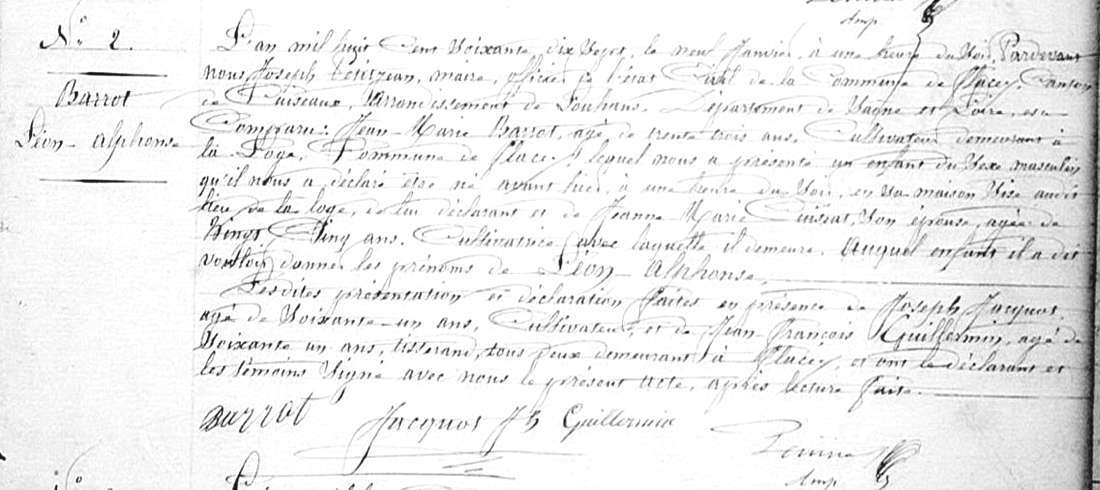 Amp
N.° 2.
Barrot
Léon-Alphonse
L'an mil huit Cent Soixante dix Sept, le neuf Janvier, à une heure du Soir, Pardevant
nous Joseph Petitjean, maire, officier de l'état Civil de la Commune de Flacey, Canton
de Cuiseaux, Arrondissement de Louhans, Département de Saône et Loire, est
Comparu: Jean-Marie Barrot, agé de trente trois ans, Cultivateur demeurant à
la Loge, Commune de Flacey, lequel nous a présenté un enfant du Sexe masculin
qu'il nous a déclaré être né avant hier, à une heure du Soir, en sa maison Sise audit
lieu de la loge, de lui déclarant et de Jeanne Marie Cuiserat, Son épouse, agée de
Vingt Cinq ans, Cultivatrice, avec laquelle il demeure. Auquel enfant il a dit
vouloir donner les prénoms de Léon-Alphonse.
Lesdites présentation et déclaration faites en présence de Joseph Jacquot,
agé de Soixante-un ans, Cultivateur, et de Jean-François Guillermin, agé de
Soixante un ans, tisserand, tous deux demeurant à Flacey, et ont le déclarant et
les témoins Signé avec nous le présent acte, après lecture faite.
Barrot Jacquot Jh Guillermin
Amp
N.°